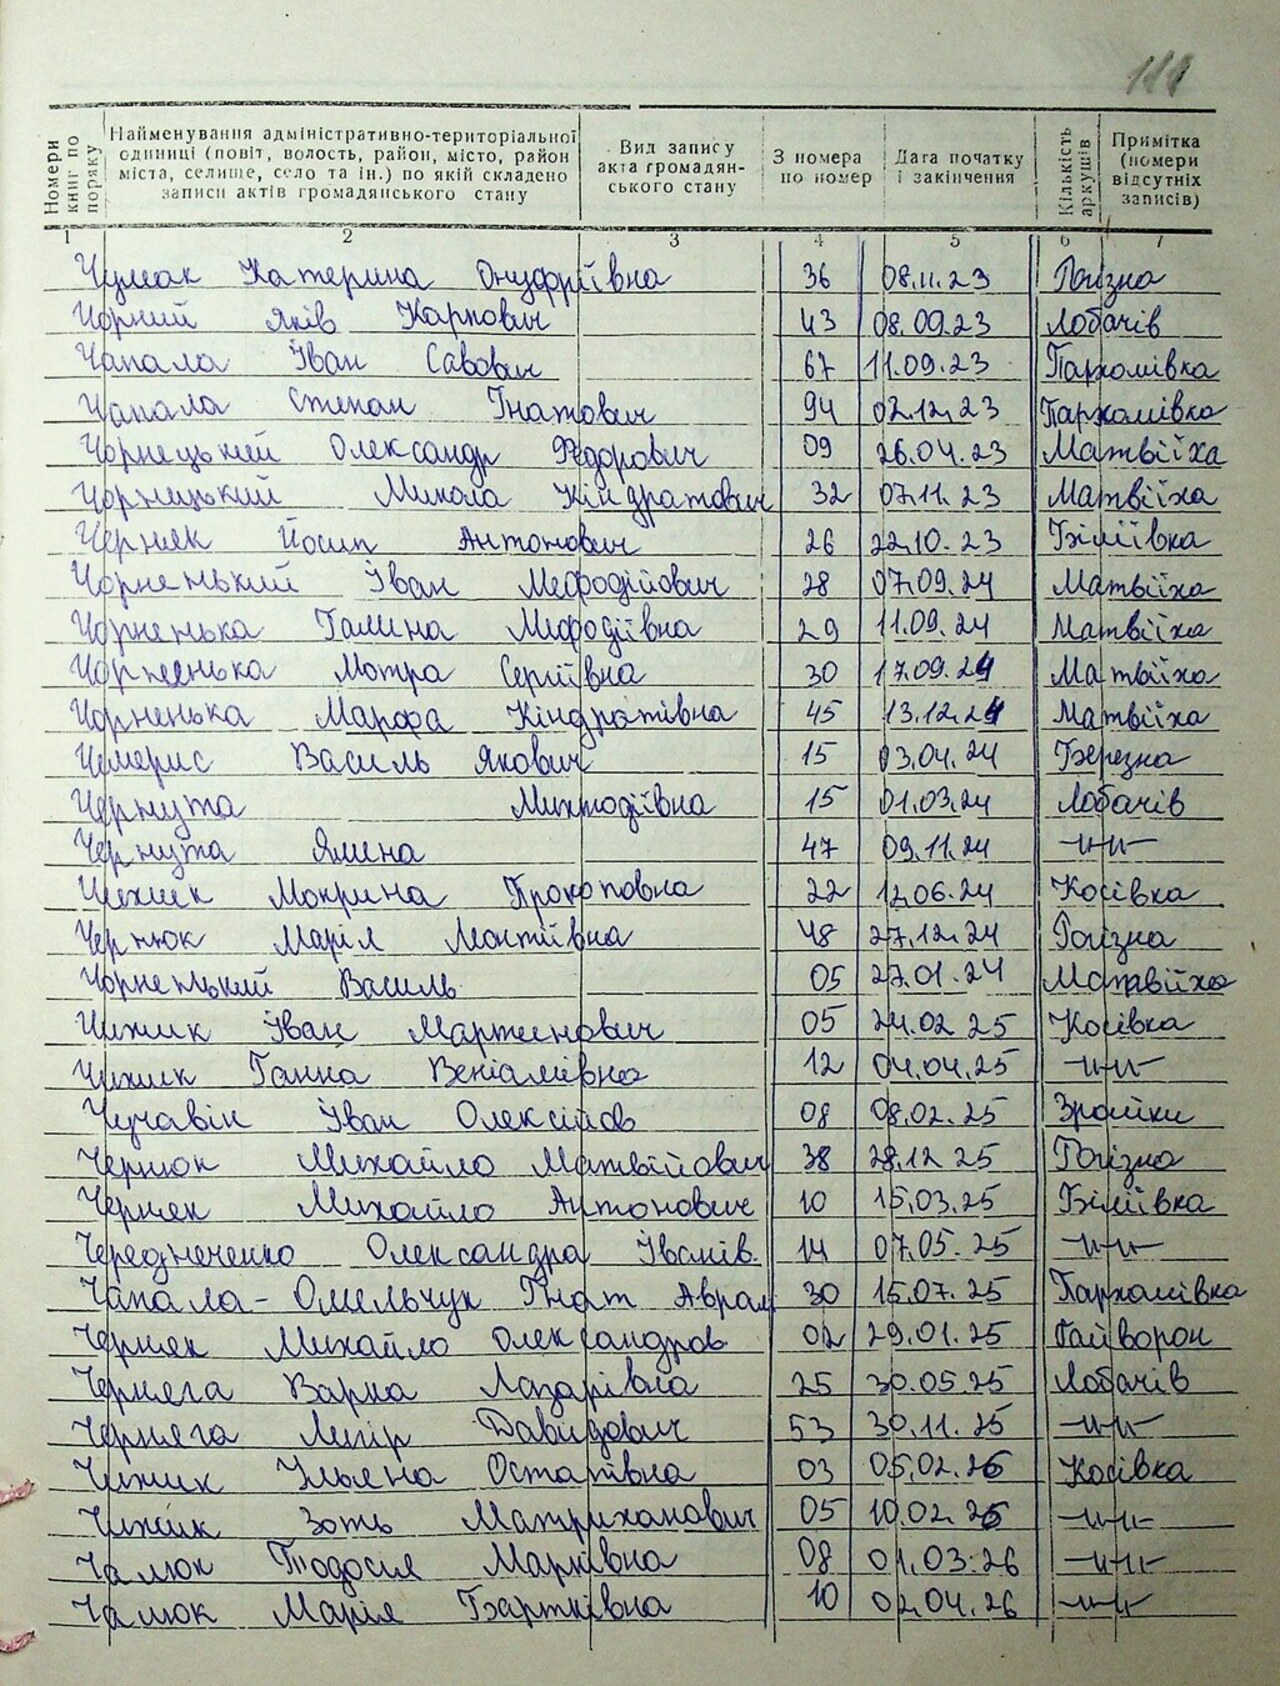 Номери книг по порядку
Найменування адміністративно-територіальної одиниці (повіт, волость, район, місто, район міста, селище, село та ін.) по якій складено записи актів громадянського стану
Вид запису акта громадянського стану
З номера по номер
Дата початку і закінчення
Кількість аркушів
Примітка (номери відсутніх записів)
1 2 3 4 5 6 7
Чумак Катерина Онуфріївна 36 08.11.23 Рогізна
Чорний Яків Карпович 43 08.09.23 Лобачів
Чапала Іван Савович 67 11.09.23 Пархомівка
Чапала Степан Гнатович 94 02.12.23 Пархомівка
Чорнецький Олександр Федорович 09 26.04.23 Матвіїха
Чорницький Микола Кіндратович 32 07.11.23 Матвіїха
Черняк Йосип Антонович 26 22.10.23 Біліївка
Чорненький Іван Мефодійович 28 07.09.24 Матвіїха
Чорненька Галина Мефодіївна 29 11.09.24 Матвіїха
Чорненька Мотра Сергіївна 30 17.09.24 Матвіїха
Чорненька Марфа Кіндратівна 45 13.12.24 Матвіїха
Чемерис Василь Якович 15 03.04.24 Березна
Чернута 15 01.03.24 Лобачів
Чернута Ялина 47 09.11.24 -"-"-
Чижик Мокрина Прокоповна 22 12.06.24 Косівка
Чернюк Марія 48 27.12.24 Рогізна
Чорненький Василь 05 27.01.24 Матвіїха
Чижик Іван Мартинович 05 24.02 25 Косівка
Чижик Ганна Веніамівна 12 04.04.25 -"-"-
Іван Олексійов 08 08.02.25 Зрайки
Чернюк Михайло Матвійович 38 28.12 25 Рогізна
Черняк Михайло Антонович 10 15.03.25 Біліївка
Чередниченко Олександра Іванів. 14 07.05.25 -"-"-
Чапала-Омельчук Гнат Аврам 30 15.07.25 Пархомівка
Черняк Михайло Олександров 02 29.01.25 Гайворон
Черняга Варка Лазарівна 25 30.05.25 Лобачів
Черняга Давидович 53 30.11.25 -"-"-
Чижик Ульяна Остапівна 03 05.02.26 Косівка
Чижик Зоть 05 10.02.26 -"-"-
Чалюк Тодосія Марківна 08 01.03.26 -"-"-
Чалюк Марія 10 02.04.26 -"-"-